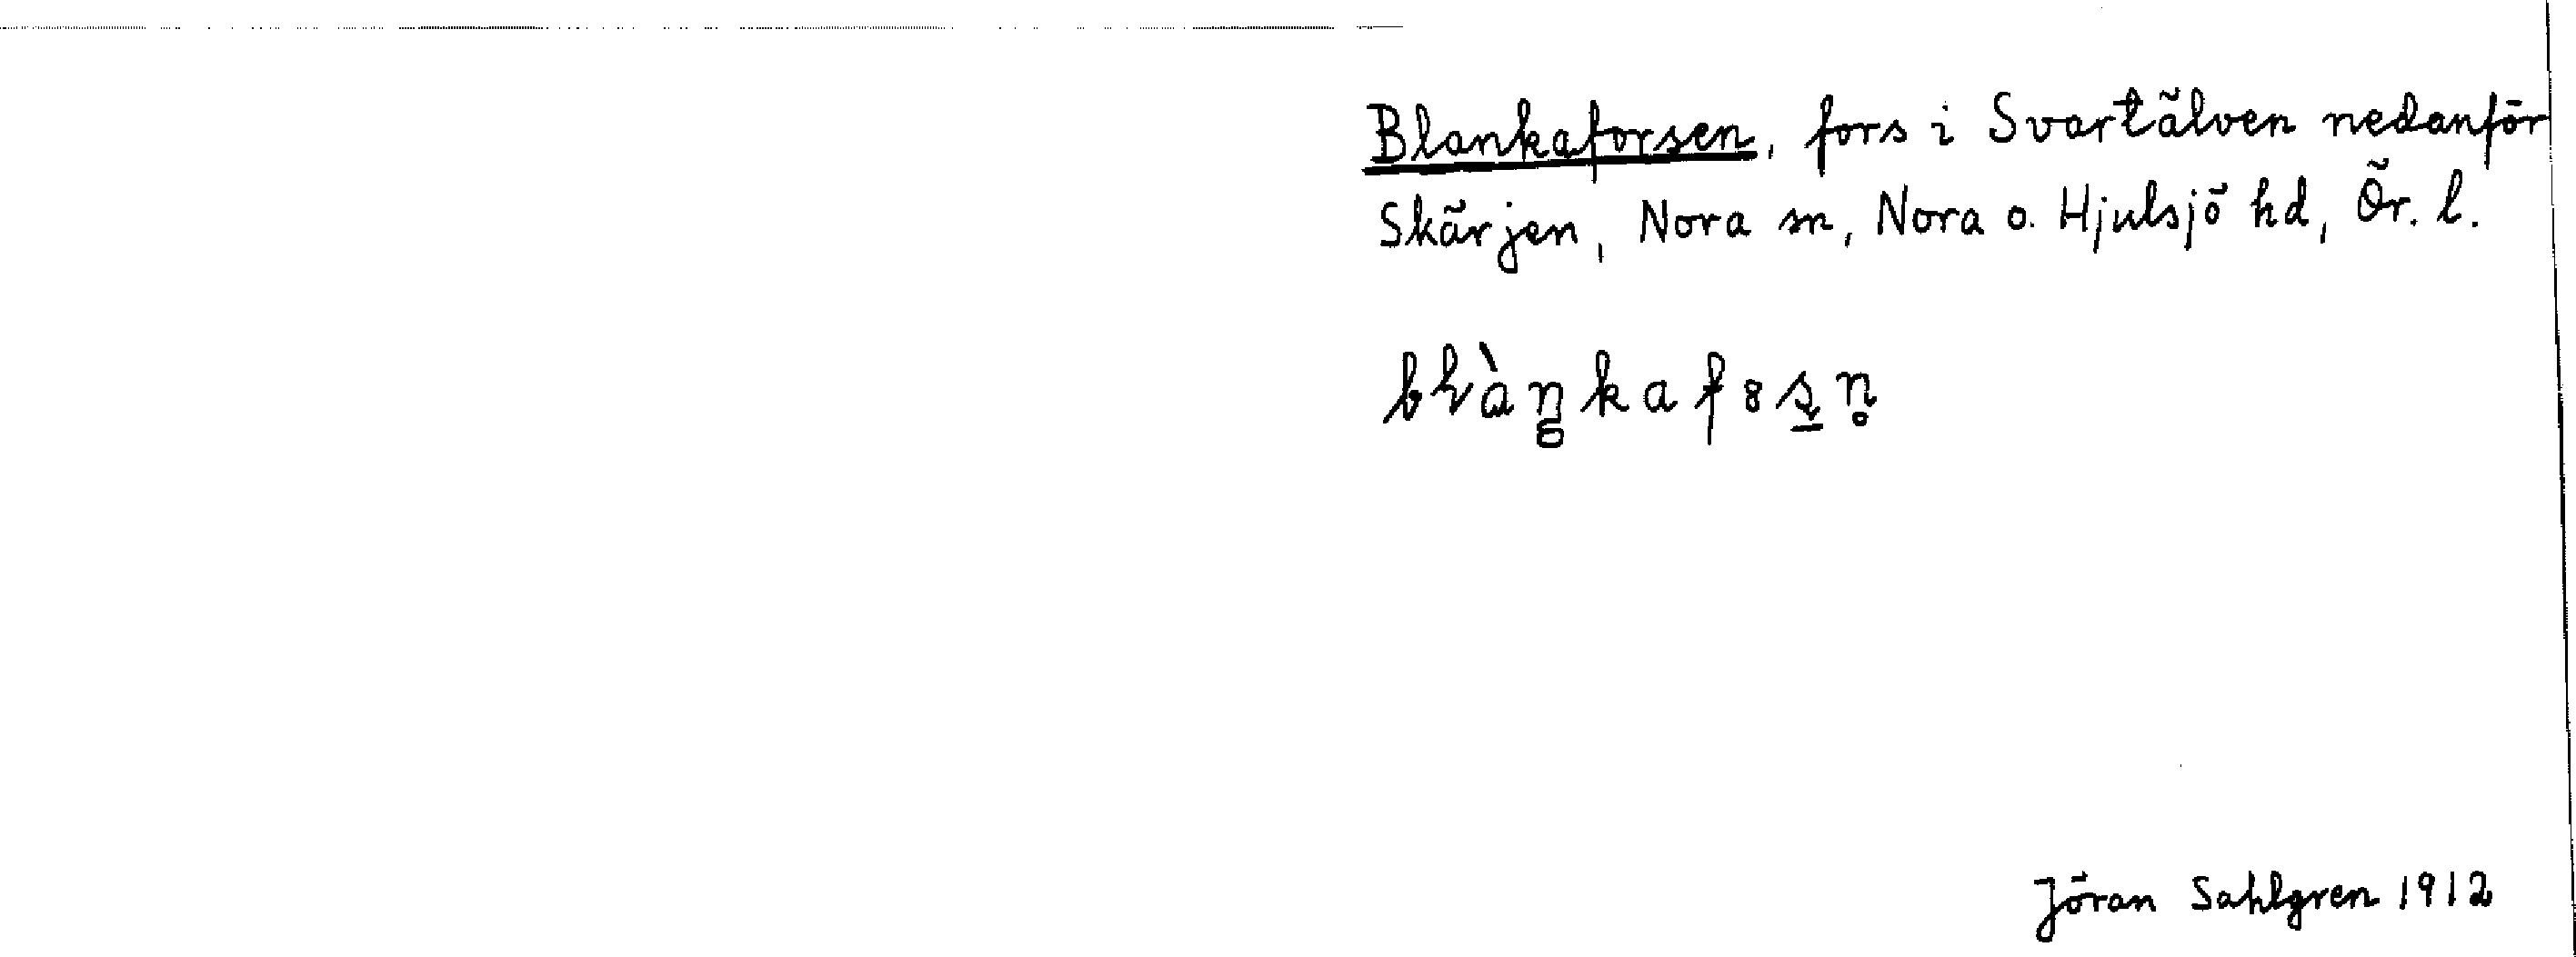 Blankaforsen, fors i Svartälven nedanför
Skärjen, Nora sn, Nora o. Hjulsjö hd, Ör. l.
Jöran Sahlgren 1912